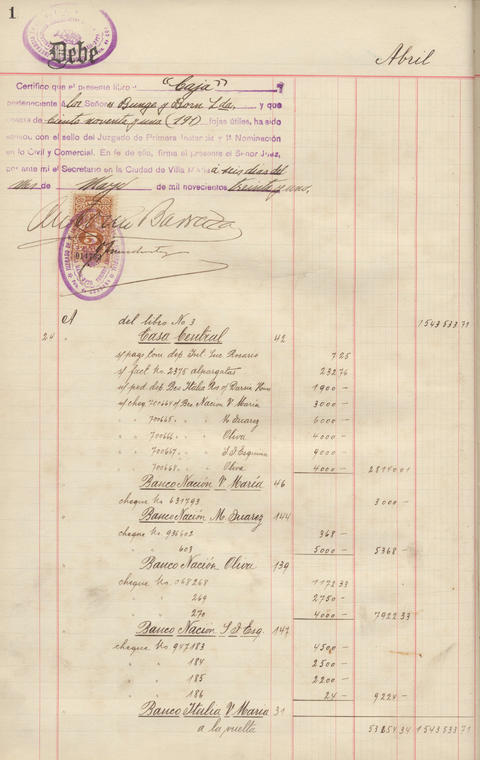 1
Debe
Abril
Certifico que el presente libro "Caja"
perteneciente á los Señores Bunge y Born Lda. y que
consta de ciento noventa y una (191) fojas útiles, ha sido
sellado con el sello del Juzgado de Primera Instancia y 1ª Nominación
en lo Civil y Comercial. En fe de ello, firma el presente el Senor Juez,
por ante mi el Secretario en la Ciudad de Villa María á seis días del
mes de Mayo de mil novecientos treinta y uno.
5
A del libro No. 3 1543533.71
24 " Casa Central 42
s/pago 7.25
s/fact No. 2375 alpargatas 232.76
s/ped dep Bco Italia Ro s/ 1900 -
s/cheq 700664 s/Bco Nacion V. Maria 3000 -
" " 700665 " " M. Juarez 6000 -
" " 700666 " " Oliva 4000 -
" " 700667 " " S. J. Esquina 9000 -
" " 700668 " " Oliva 4000 - 28140.01
" Banco Nación V. María 46
cheque No 631793 3000 -
" Banco Nación M. Juarez 144
cheque No. 936602 368 -
" 603 5000 - 5368 -
" Banco Nación Oliva 139
cheque No. 068268 1172.33
" 269 2750 -
" 270 4000 - 7922.33
" Banco Nación S. J. Esq. 147
cheque No 947183 4500 -
" 184 2500 -
" 185 2200 -
" 186 24 - 9224 -
" Banco Italia V. María 31
a la vuelta 53654.34 1543533.71